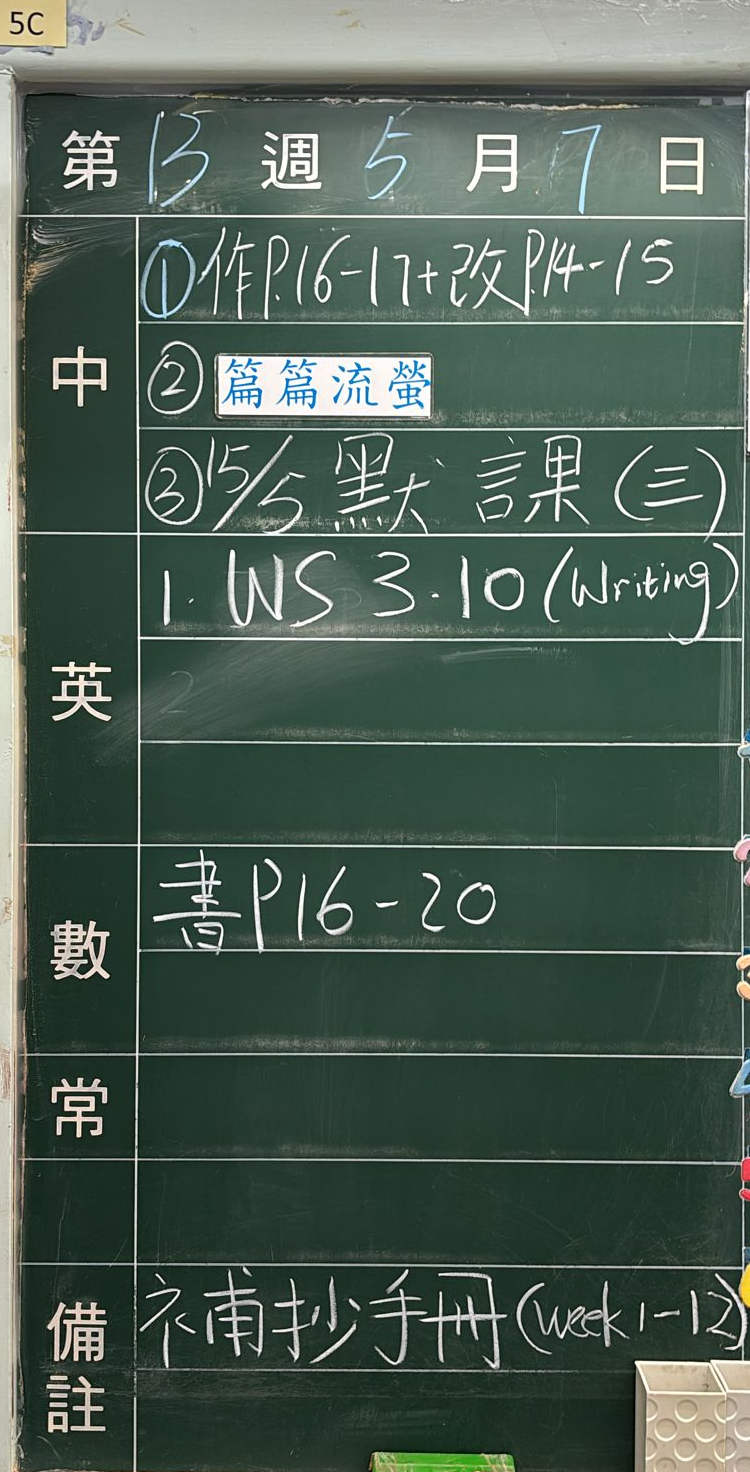 5C
第 13 週 5 月 7 日
中
①作P.16-17+改P.14-15
② 篇篇流螢
③15/5 默 課 (三)
英
1. WS 3.10 (Writing)
2
數
書P16-20
常
備註
補抄手冊(week 1-12)